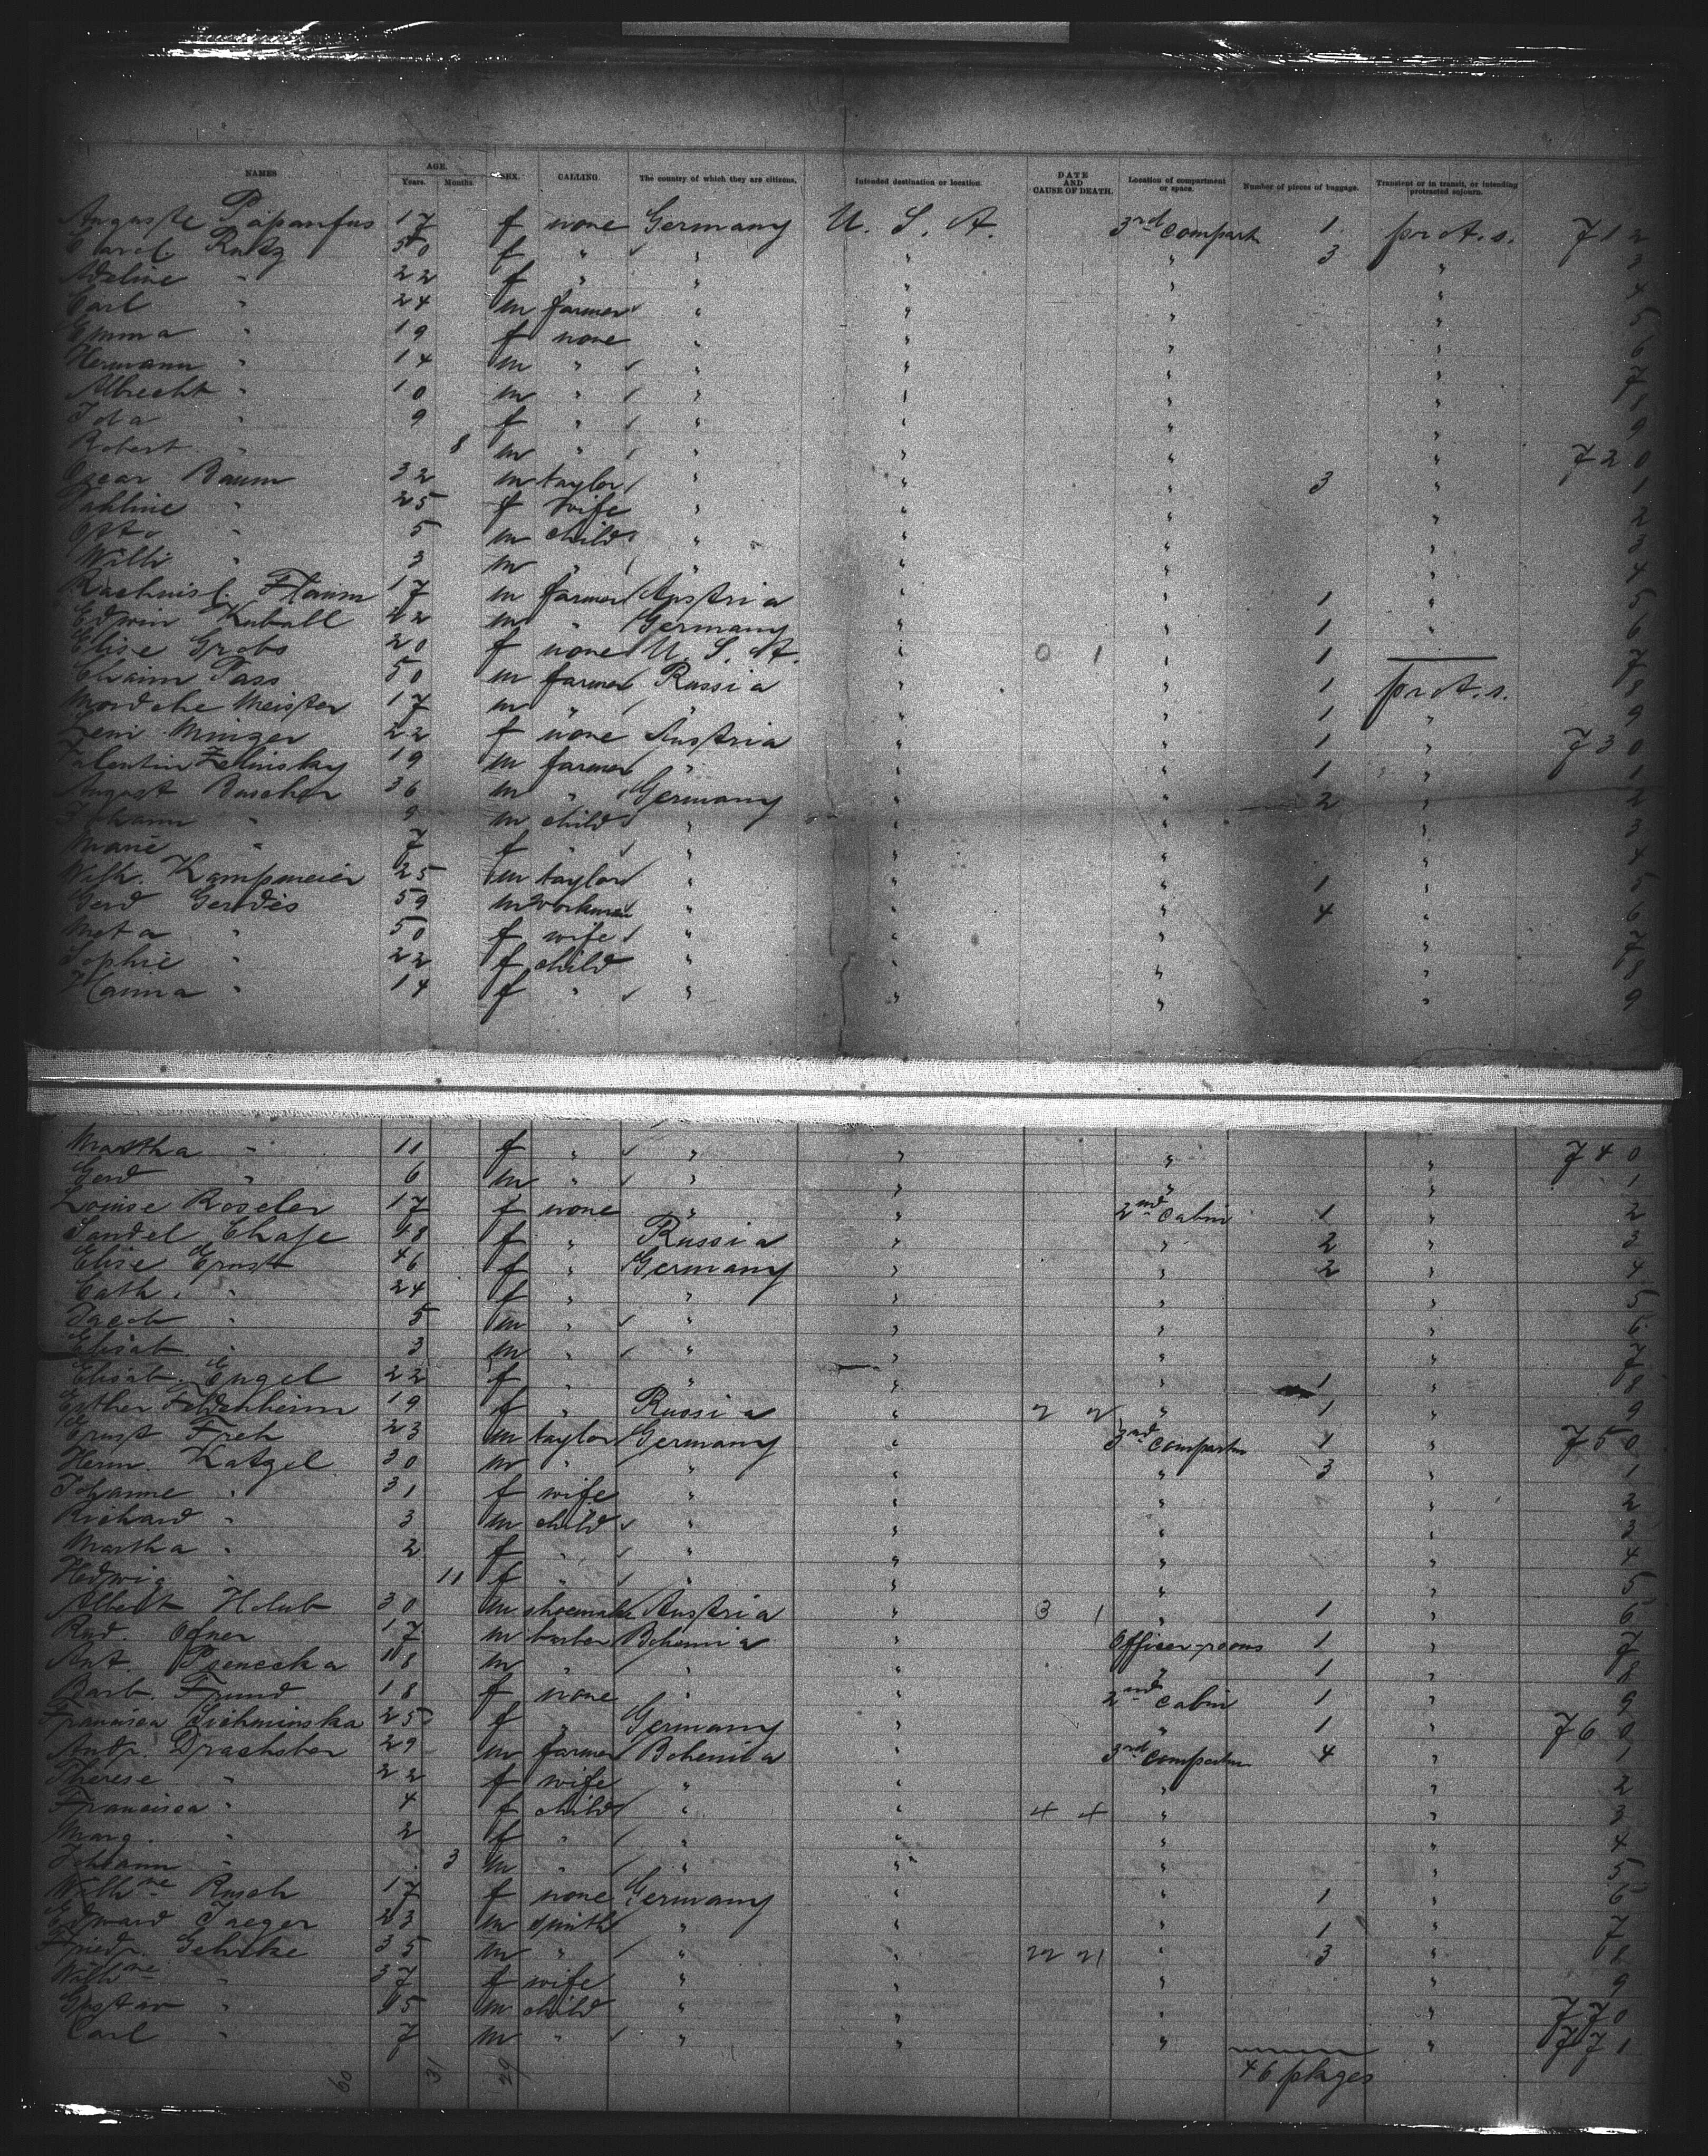 NAMES AGE. Years. Months. SEX. CALLING. The country of which they are citizens. Intended destination or location. DATE AND CAUSE OF DEATH. Location of compartment or space. Number of pieces of baggage. Transient or in transit, or intending protracted sojourn.
Auguste Papanfus 17 f none Germany U. S. A. 3rd compart 1 prot. s. 712
Carol. Ratz 50 f " " " " 3 " 3
Adeline " 22 f " " " " " 4
Carl " 24 m farmer " " " " 5
Emma " 19 f none " " " " 6
Hermann " 14 m " " " " " 7
Albrecht " 10 m " " " " " 8
Ida " 9 f " " " " " 9
Robert " 8 m " " " " " 720
Oscar Baum 32 m taylor " " " 3 " 1
Pauline " 25 f wife " " " " 2
Otto " 5 m child " " " " 3
Willi " 3 m " " " " " 4
Flaum 17 m farmer Austria " " 1 " 5
Edwin Kuball 22 m " Germany " " 1 " 6
Elise Grobs 20 f none U. S. A. " 0 1 " 1 — 7
Chaim Pass 50 m farmer Russia " " 1 prot. s. 8
Mordche Meister 17 m " " " " 1 " 9
Minzer 22 f none Austria " " 1 " 730
Valentin Zelinsky 19 m farmer " " " 1 " 1
August Buscher 36 m " Germany " " 2 " 2
Johann " 9 m child " " " " 3
Marie " 7 f " " " " " 4
Wilh. Kampmeier 25 m taylor " " " 1 " 5
Gerd Gerdes 59 m workman " " " 4 " 6
Meta " 50 f wife " " " " 7
Sophie " 22 f child " " " " 8
Hanna " 14 f " " " " " 9
Martha " 11 f " " " " " 740
Gerd " 6 m " " " " " 1
Louise Roseler 17 f none " " 2nd cabin 1 " 2
Sandel Chaje 48 f " Russia " " 2 " 3
Elise Ernst 46 f " Germany " " 2 " 4
Cath. " 24 f " " " " " 5
Jacob " 5 m " " " " " 6
Elisab. " 3 m " " " " " 7
Elisab. Engel 22 f " " " " 1 " 8
Esther Feldenheim 19 f " Russia " 2 2 " 1 " 9
Ernst Freh 23 m taylor Germany " 3rd compartm 1 " 750
Herm. Katzel 30 m " " " " 3 " 1
Johanne " 31 f wife " " " " 2
Richard " 3 m child " " " " 3
Martha " 2 f " " " " " 4
Hedwig " 11 f " " " " " 5
Albert Holub 30 m shoemaker Austria " 3 1 " 1 " 6
Rud. Ofner 17 m barber Bohemia officer-rooms 1 " 7
Ant. 18 m " " " 1 " 8
Barb. Frund 18 f none " 2nd cabin 1 " 9
Francisca Lichminska 25 f " Germany " 1 " 760
Andr. Drachsler 29 m farmer Bohemia " 3rd compartm 4 " 1
Therese " 22 f wife " " " " 2
Francisca " 4 f child " " 4 4 " " 3
Marg. " 2 f " " " " " 4
Johann " 3 m " " " " " 5
Wilhne Rusch 17 f none Germany " " 1 " 6
Edward Jaeger 23 m smith " " " 1 " 7
Friedr. Gehrke 35 m " " " 22 21 " 3 " 8
Wilhne " 37 f wife " " " " 9
Gustav " 15 m child " " " " 770
Carl " 7 m " " " " " 771
60 31 29 46 pkges